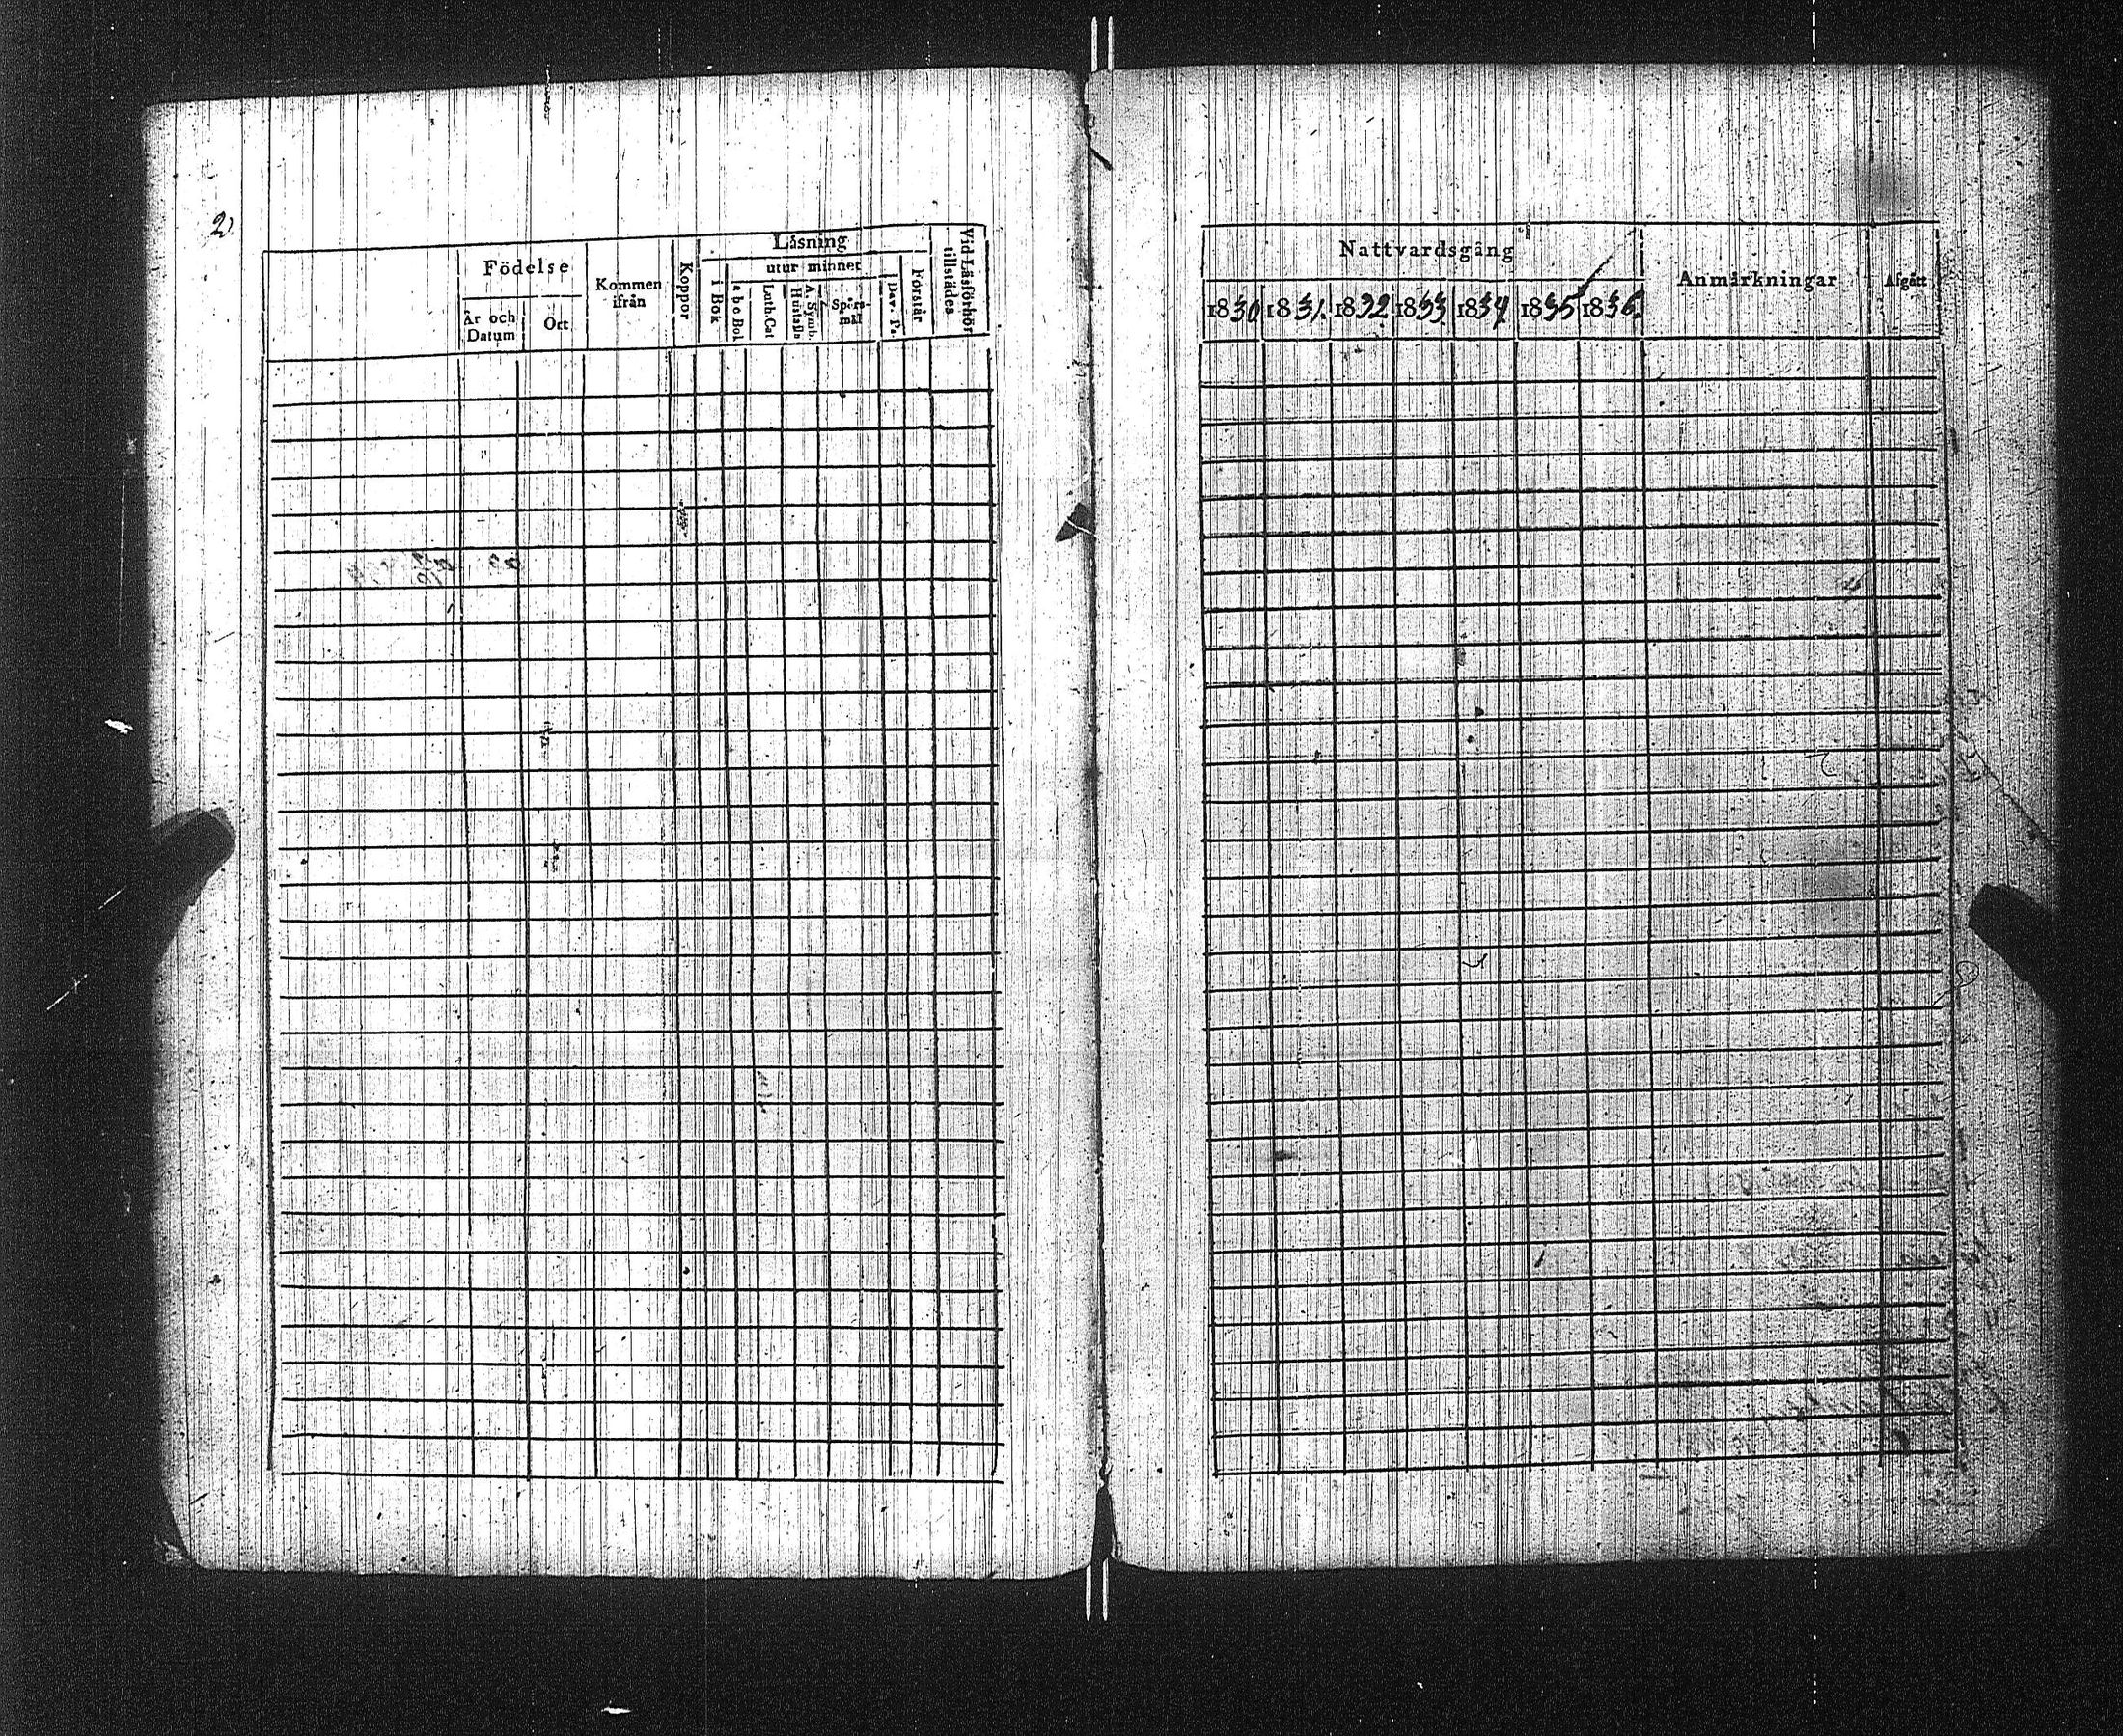 2
Födelse
År och
Datum
Ort
Kommen
ifrån
Koppor
Läsning
i Bok
utur minnet
a b c Bok
Luth. Cat
A. Symb.
Hustafla
Spörs-
mål
Dav. Ps.
Förstår
Vid Läsförhör
tillstädes
Nattvardsgång
1830 1831. 1832 1833 1834 1835 1836.
Anmärkningar
Afgått